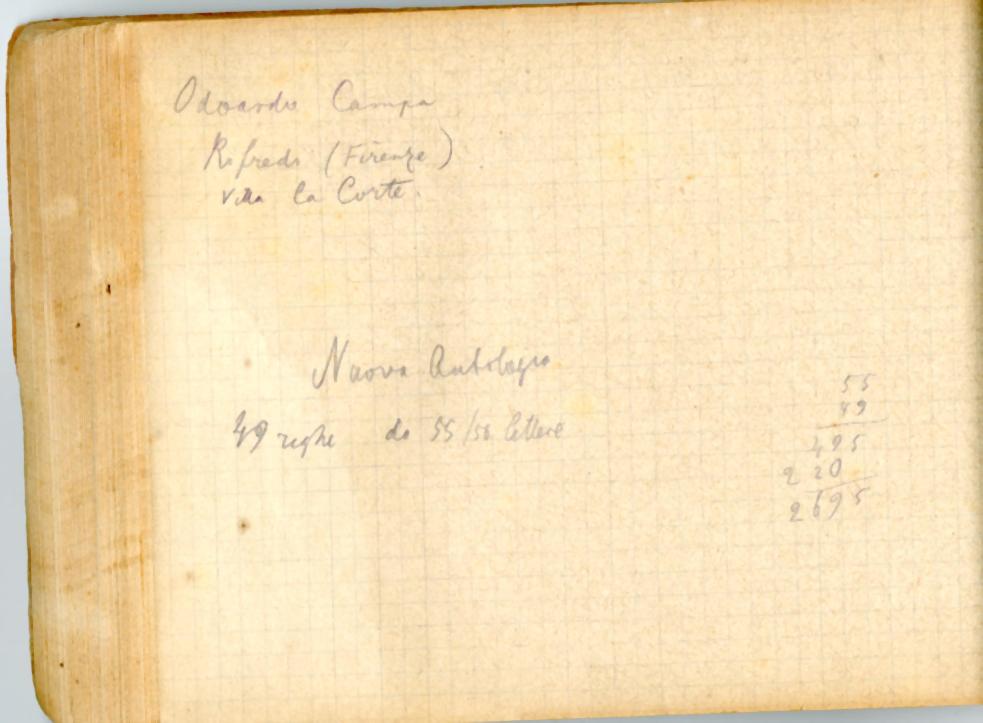 Odoardo Campa
Rifredi (Firenze)
Villa la Corte.
Nuova Antologia
49 righe da 55/56 lettere
55
49
495
220
2695